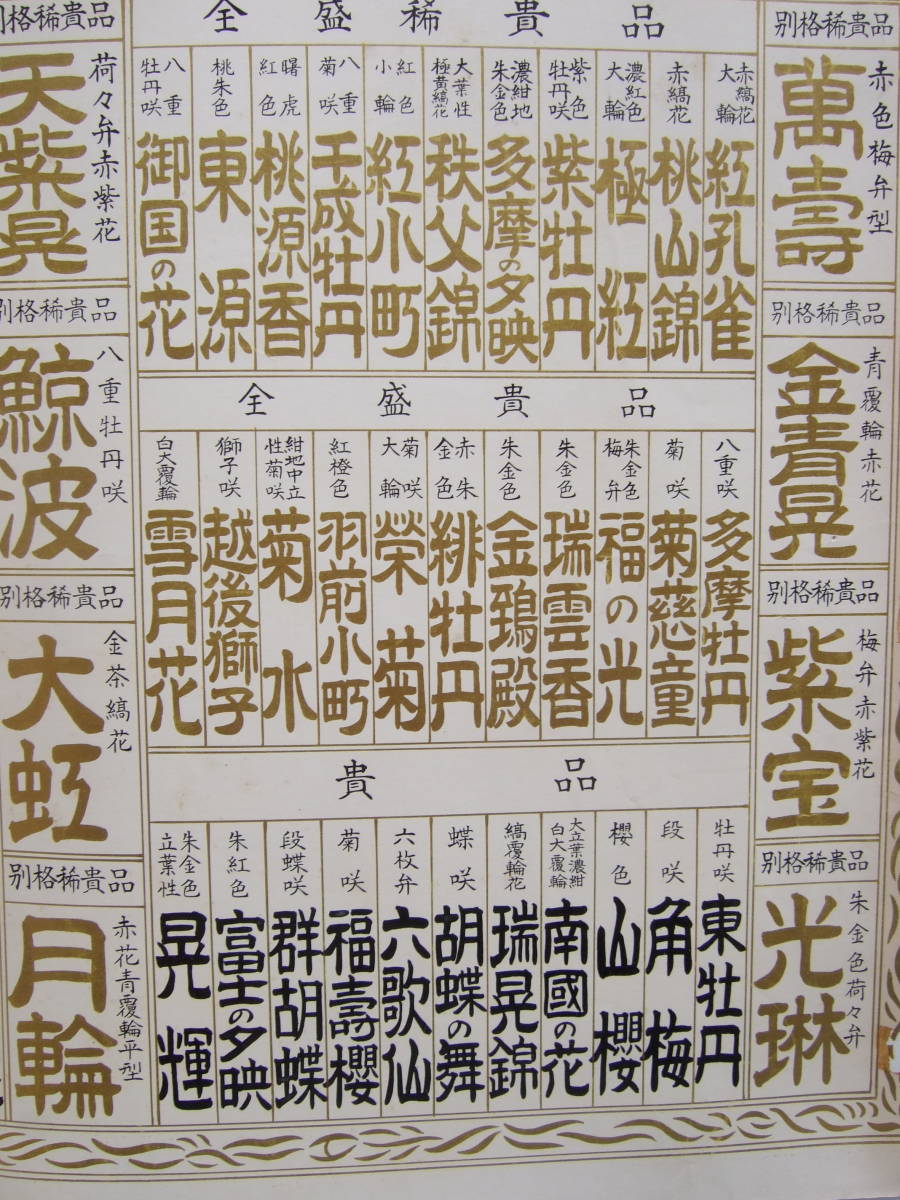 別格稀貴品
赤色梅弁型
萬壽
別格稀貴品
青覆輪赤花
金青晃
別格稀貴品
梅弁赤紫花
紫宝
別格稀貴品
朱金色荷々弁
光琳
全盛稀貴品
赤縞花大輪
紅孔雀
赤縞花
桃山錦
濃紅色大輪
極紅
紫色牡丹咲
紫牡丹
濃紺地朱金色
多摩の夕映
大葉性極黄縞花
秩父錦
紅色小輪
紅小町
八重菊咲
千成牡丹
曙虎紅色
桃源香
桃朱色
東源
八重牡丹咲
御国の花
全盛貴品
八重咲
多摩牡丹
菊咲
菊慈童
朱金色梅弁
福の光
朱金色
瑞雲香
朱金色
金鵄殿
赤朱金色
緋牡丹
菊咲大輪
榮菊
紅橙色
羽前小町
紺地中立性菊咲
菊水
獅子咲
越後獅子
白大覆輪
雪月花
貴品
牡丹咲
東牡丹
段咲
角梅
櫻色
山櫻
大立葉濃紺白大覆輪
南國の花
縞覆輪花
瑞晃錦
蝶咲
胡蝶の舞
六枚弁
六歌仙
菊咲
福壽櫻
段蝶咲
群胡蝶
朱紅色
富士の夕映
朱金色立葉性
晃輝
別格稀貴品
荷々弁赤紫花
天紫晃
別格稀貴品
八重牡丹咲
鯨波
別格稀貴品
金茶縞花
大虹
別格稀貴品
赤花青覆輪平型
月輪